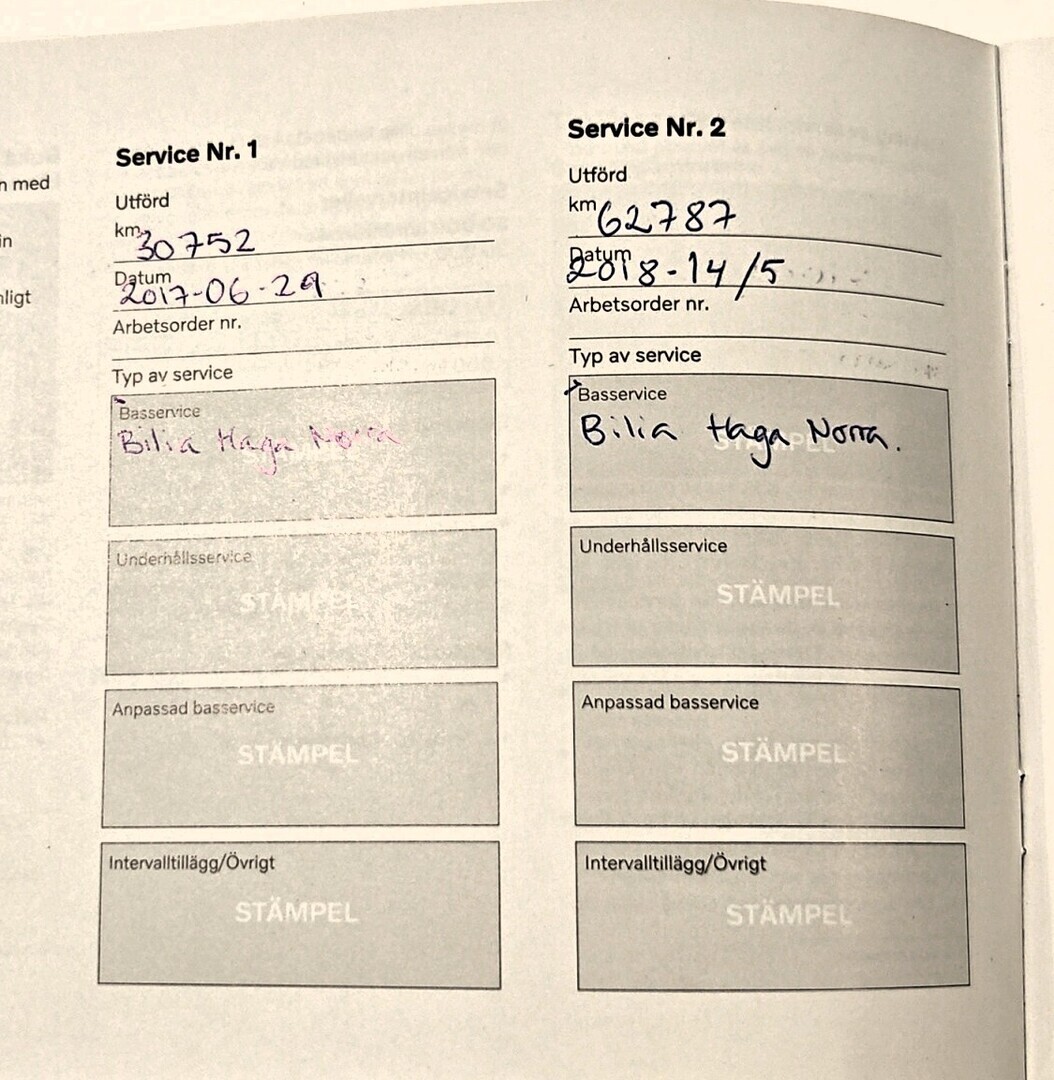 n med
in
nligt
Service Nr. 1
Utförd
km 30752
Datum 2017-06-29
Arbetsorder nr.
Typ av service
Basservice
Bilia Haga Norra
Underhållsservice
STÄMPEL
Anpassad basservice
STÄMPEL
Intervalltillägg/Övrigt
STÄMPEL
Service Nr. 2
Utförd
km 62787
Datum 2018-14/5
Arbetsorder nr.
Typ av service
Basservice
STÄMPEL
Bilia Haga Norra.
Underhållsservice
STÄMPEL
Anpassad basservice
STÄMPEL
Intervalltillägg/Övrigt
STÄMPEL